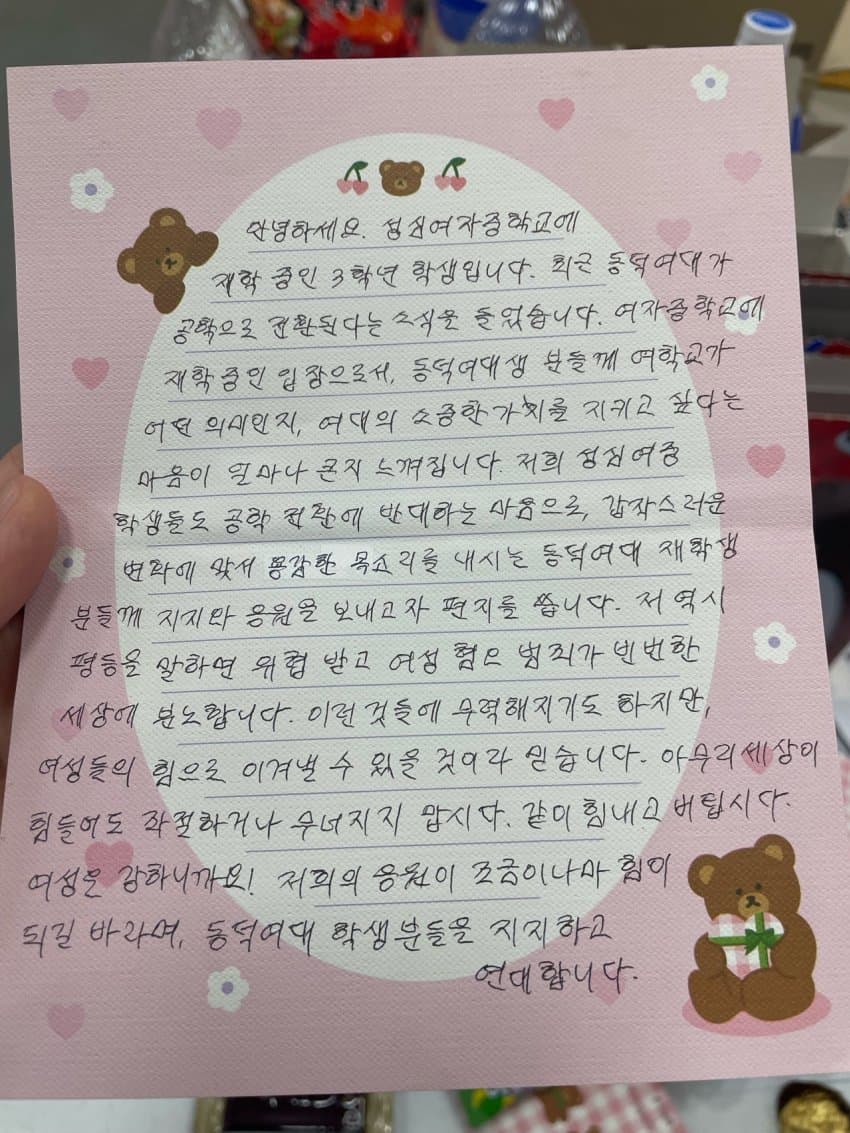 안녕하세요. 성심여자중학교에
재학 중인 3학년 학생입니다. 최근 동덕여대가
공학으로 전환된다는 소식을 들었습니다. 여자중학교에
재학중인 입장으로서, 동덕여대생 분들께 여학교가
어떤 의미인지, 여대의 소중한가치를 지키고 싶다는
마음이 얼마나 큰지 느껴집니다. 저희 성심여중
학생들도 공학 전환에 반대하는 마음으로, 갑작스러운
변화에 맞서 용감한 목소리를 내시는 동덕여대 재학생
분들께 지지와 응원을 보내고자 편지를 씁니다. 저 역시
평등을 말하면 위협 받고 여성 혐오 범죄가 빈번한
세상에 분노합니다. 이런 것들에 무력해지기도 하지만,
여성들의 힘으로 이겨낼 수 있을 것이라 믿습니다. 아무리세상이
힘들어도 좌절하거나 무너지지 맙시다. 같이 힘내고 버팁시다.
여성은 강하니까요! 저희의 응원이 조금이나마 힘이
되길 바라며, 동덕여대 학생분들을 지지하고
연대합니다.